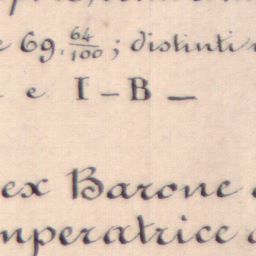 e 69. 64/100; distinti
e I - B -
ex Barone
mperatrice